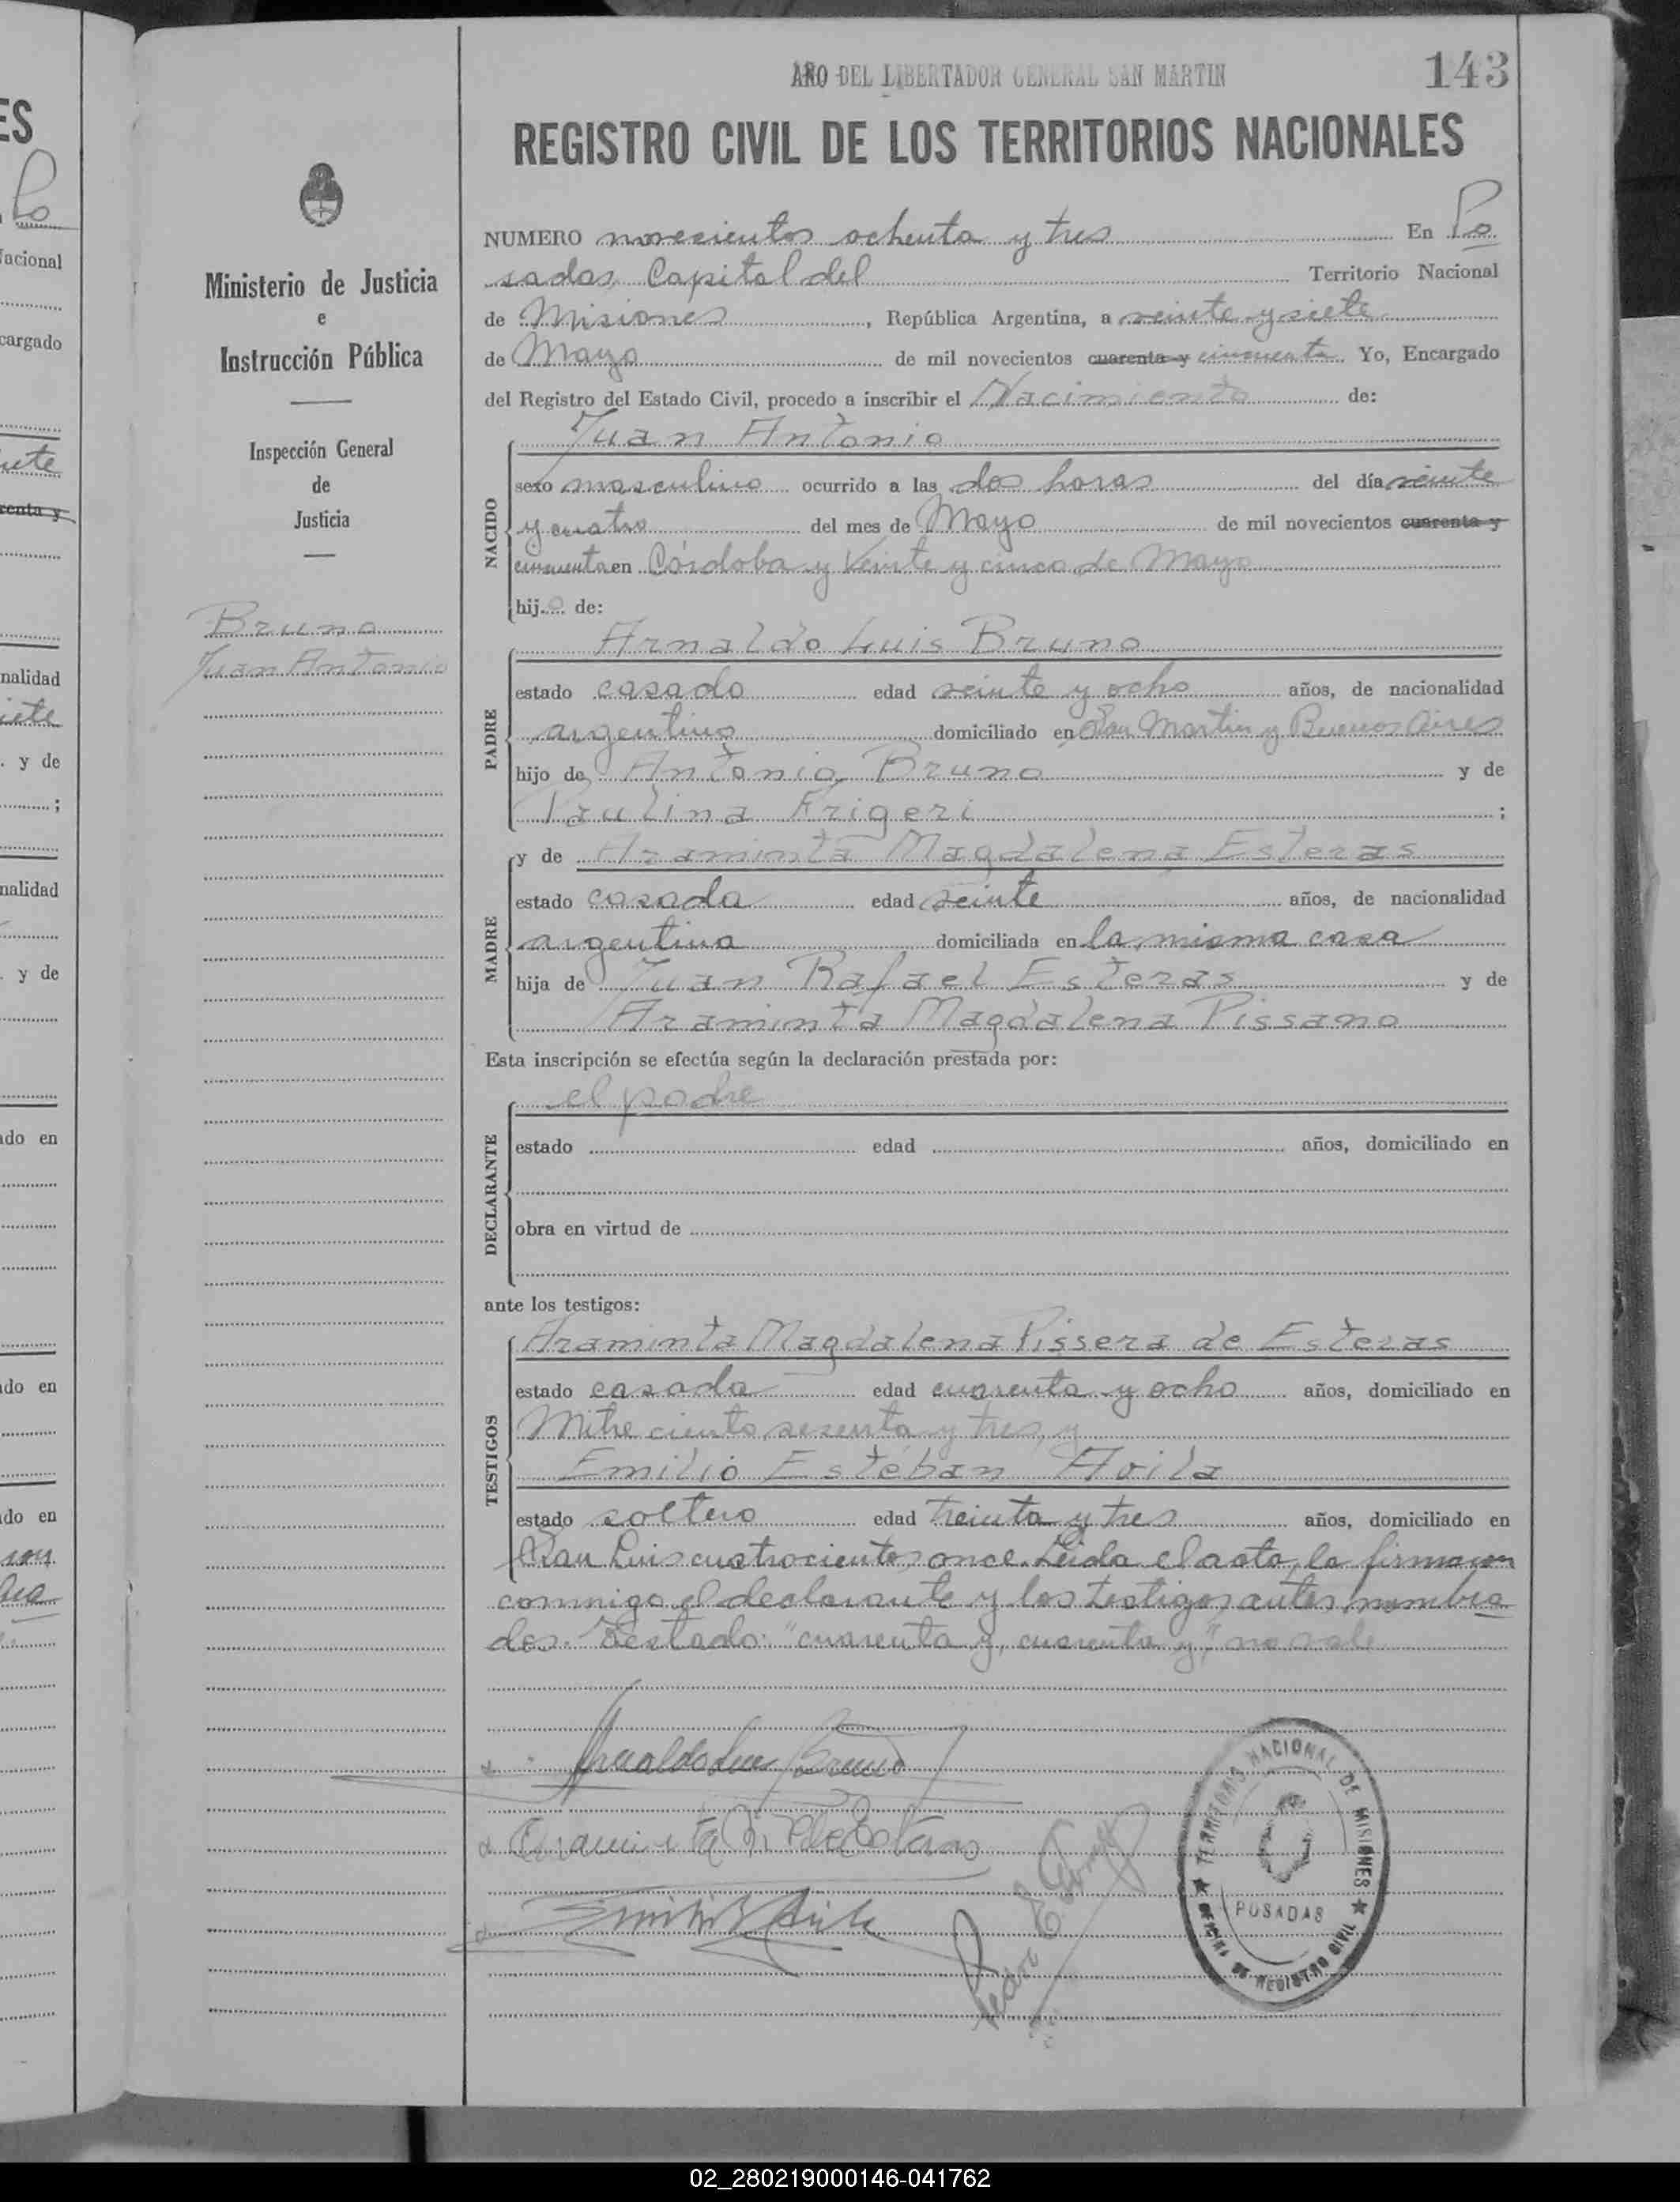 AÑO DEL LIBERTADOR GENERAL SAN MARTIN
143
REGISTRO CIVIL DE LOS TERRITORIOS NACIONALES
Ministerio de Justicia
e
Instrucción Pública
Inspección General
de
Justicia
Bruno
Juan Antonio
NUMERO novecientos ochenta y tres En Po
sadas, Capital del Territorio Nacional
de Misiones, República Argentina, a veinte y siete
de Mayo de mil novecientos cuarenta y cincuenta. Yo, Encargado
del Registro del Estado Civil, procedo a inscribir el Nacimiento de:
NACIDO
Juan Antonio
sexo masculino ocurrido a las dos horas del día veinte
y cuatro del mes de Mayo de mil novecientos cuarenta y
cincuenta en Córdoba y Veinte y cinco de Mayo
hijo de:
PADRE
Arnaldo Luis Bruno
estado casado edad veinte y ocho años, de nacionalidad
argentino domiciliado en San Martin y Buenos Aires
hijo de Antonio Bruno y de
Paulina Frigeri ;
MADRE
y de Araminta Magdalena Esteras
estado casada edad veinte años, de nacionalidad
argentina domiciliada en la misma casa
hija de Juan Rafael Esteras y de
Araminta Magdalena Pissano
Esta inscripción se efectúa según la declaración prestada por:
DECLARANTE
el padre
estado edad años, domiciliado en
obra en virtud de
ante los testigos:
TESTIGOS
Araminta Magdalena Pissera de Esteras
estado casada edad cuarenta y ocho años, domiciliado en
Mitre ciento sesenta y tres, y
Emilio Esteban Avila
estado soltero edad treinta y tres años, domiciliado en
San Luis cuatrocientos once. Leida el acta, la firmaron
conmigo el declarante y los testigos antes nombra
dos. Testado: "cuarenta y, cuarenta y," no vale
Arnaldo Luis Bruno
TERRITORIO NACIONAL DE MISIONES
POSADAS
OFICINA DE REGISTRO CIVIL
02_280219000146-041762